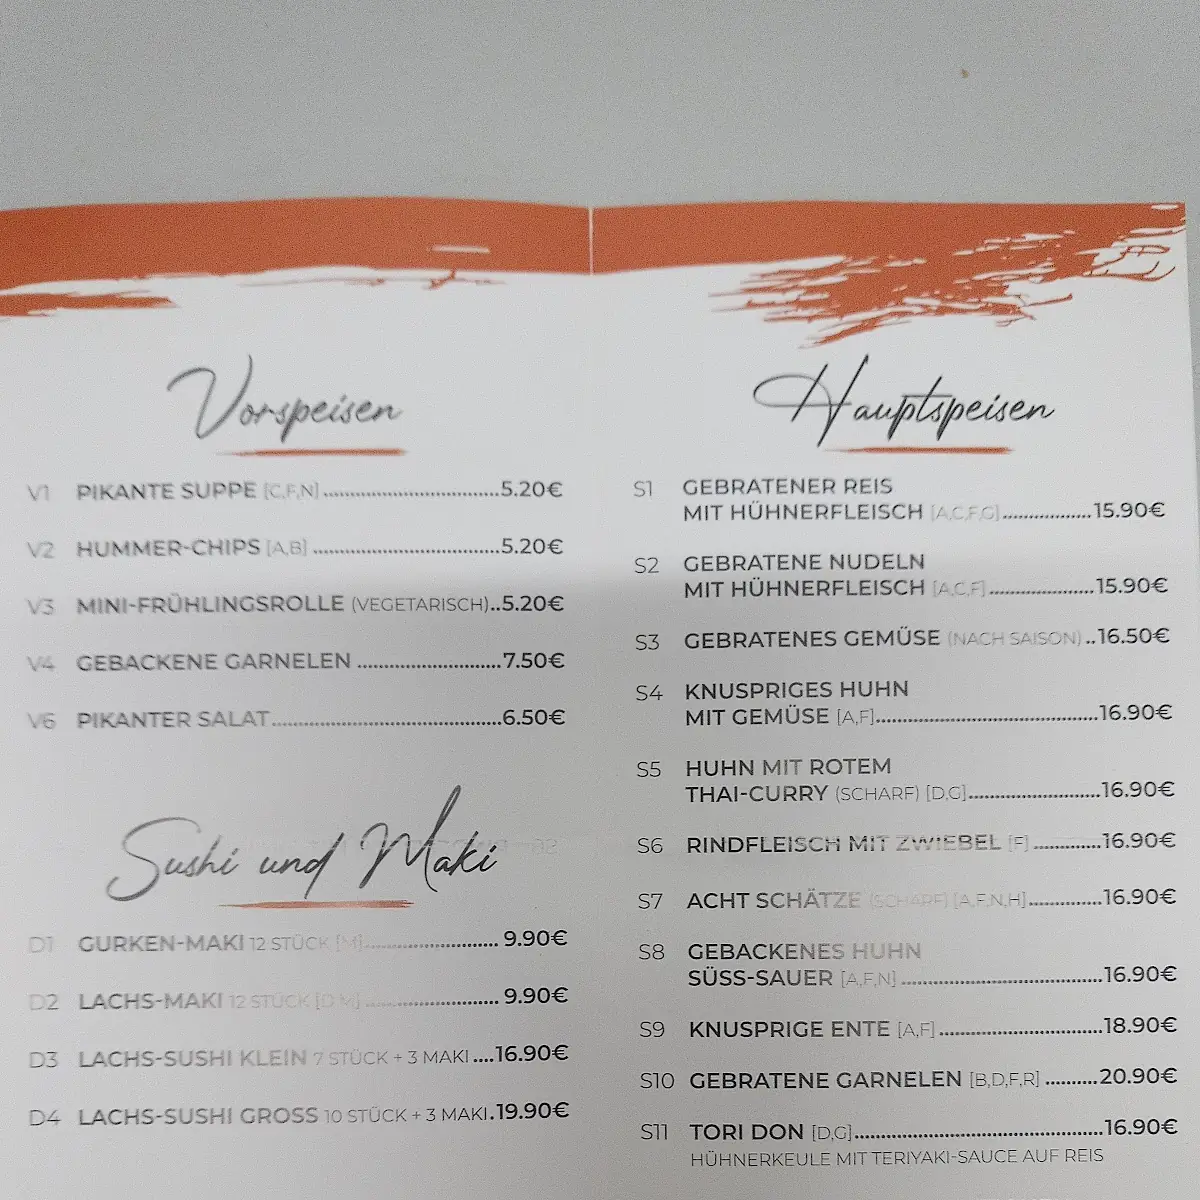 Vorspeisen
V1 PIKANTE SUPPE [C,F,N] 5.20€
V2 HUMMER-CHIPS [A,B] 5.20€
V3 MINI-FRÜHLINGSROLLE (VEGETARISCH) 5.20€
V4 GEBACKENE GARNELEN 7.50€
V6 PIKANTER SALAT 6.50€
Sushi und Maki
D1 GURKEN-MAKI 12 STÜCK [M] 9.90€
D2 LACHS-MAKI 12 STÜCK [D,M] 9.90€
D3 LACHS-SUSHI KLEIN 7 STÜCK + 3 MAKI 16.90€
D4 LACHS-SUSHI GROSS 10 STÜCK + 3 MAKI 19.90€
Hauptspeisen
S1 GEBRATENER REIS
MIT HÜHNERFLEISCH [A,C,F,G] 15.90€
S2 GEBRATENE NUDELN
MIT HÜHNERFLEISCH [A,C,F] 15.90€
S3 GEBRATENES GEMÜSE (NACH SAISON) 16.50€
S4 KNUSPRIGES HUHN
MIT GEMÜSE [A,F] 16.90€
S5 HUHN MIT ROTEM
THAI-CURRY (SCHARF) [D,G] 16.90€
S6 RINDFLEISCH MIT ZWIEBEL [F] 16.90€
S7 ACHT SCHÄTZE (SCHARF) [A,F,N,H] 16.90€
S8 GEBACKENES HUHN
SÜSS-SAUER [A,F,N] 16.90€
S9 KNUSPRIGE ENTE [A,F] 18.90€
S10 GEBRATENE GARNELEN [B,D,F,R] 20.90€
S11 TORI DON [D,G] 16.90€
HÜHNERKEULE MIT TERIYAKI-SAUCE AUF REIS